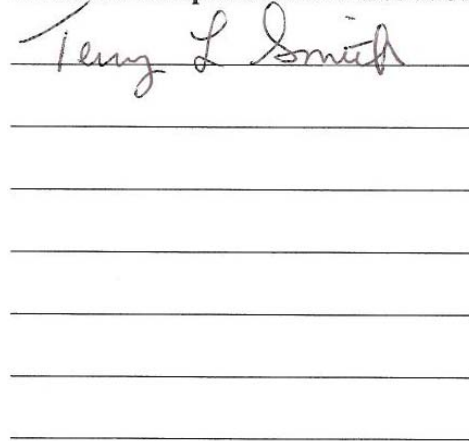 Terry L Smith